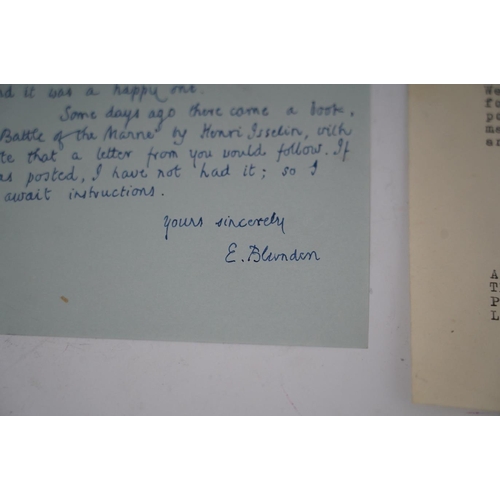 ad it was a happy one.
Some days ago there came a book,
Battle of the Marne" by Henri Isselin, with
te that a letter from you would follow. If
as posted, I have not had it; so I
await instructions.
Yours sincerely
E. Blunden
We
fo
po
me
ar
A
T
P
L